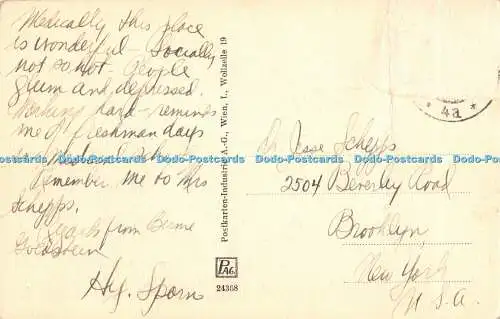 Medically this place
is wonderful – Socially
not so hot – People
glum and depressed.
Working hard – reminds
me of freshman days
in Medical School.
Remember me to Mrs
Schepps.
Regards from Bernie
Goldstein
Hy. Sporn
Postkarten-Industrie A.-G., Wien, I., Wollzeile 19
PAG
24368
* 4a *
Dr Jesse Schepps
2504 Beverley Road
Brooklyn
New York
U.S.A.
Dodo-Postcards Dodo-Postcards Dodo-Postcards Dodo-Postcards Dodo-Postcards Dodo-Postcards